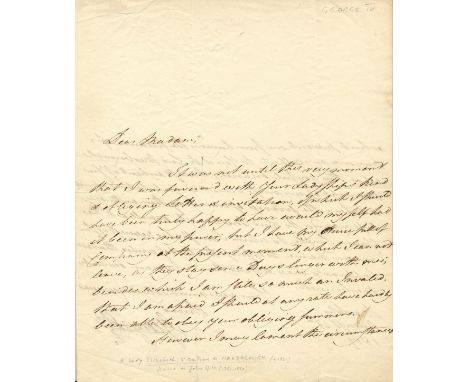 GEORGE IV
Dear Madam,
It was not until this very moment
that I was favored with Your Ladyships kind
& obliging letter & invitation, of which I should
have been truly happy to have avail'd myself had
it been in my power, but I have my House full of
Company at the present moment, which I can not
leave, as they stay some Days longer with me;
besides which I am still so much an Invalid,
that I am afraid I should at any rate have hardly
been able to obey Your obliging summons.
However I may lament the circumstances
to Lady Elizabeth